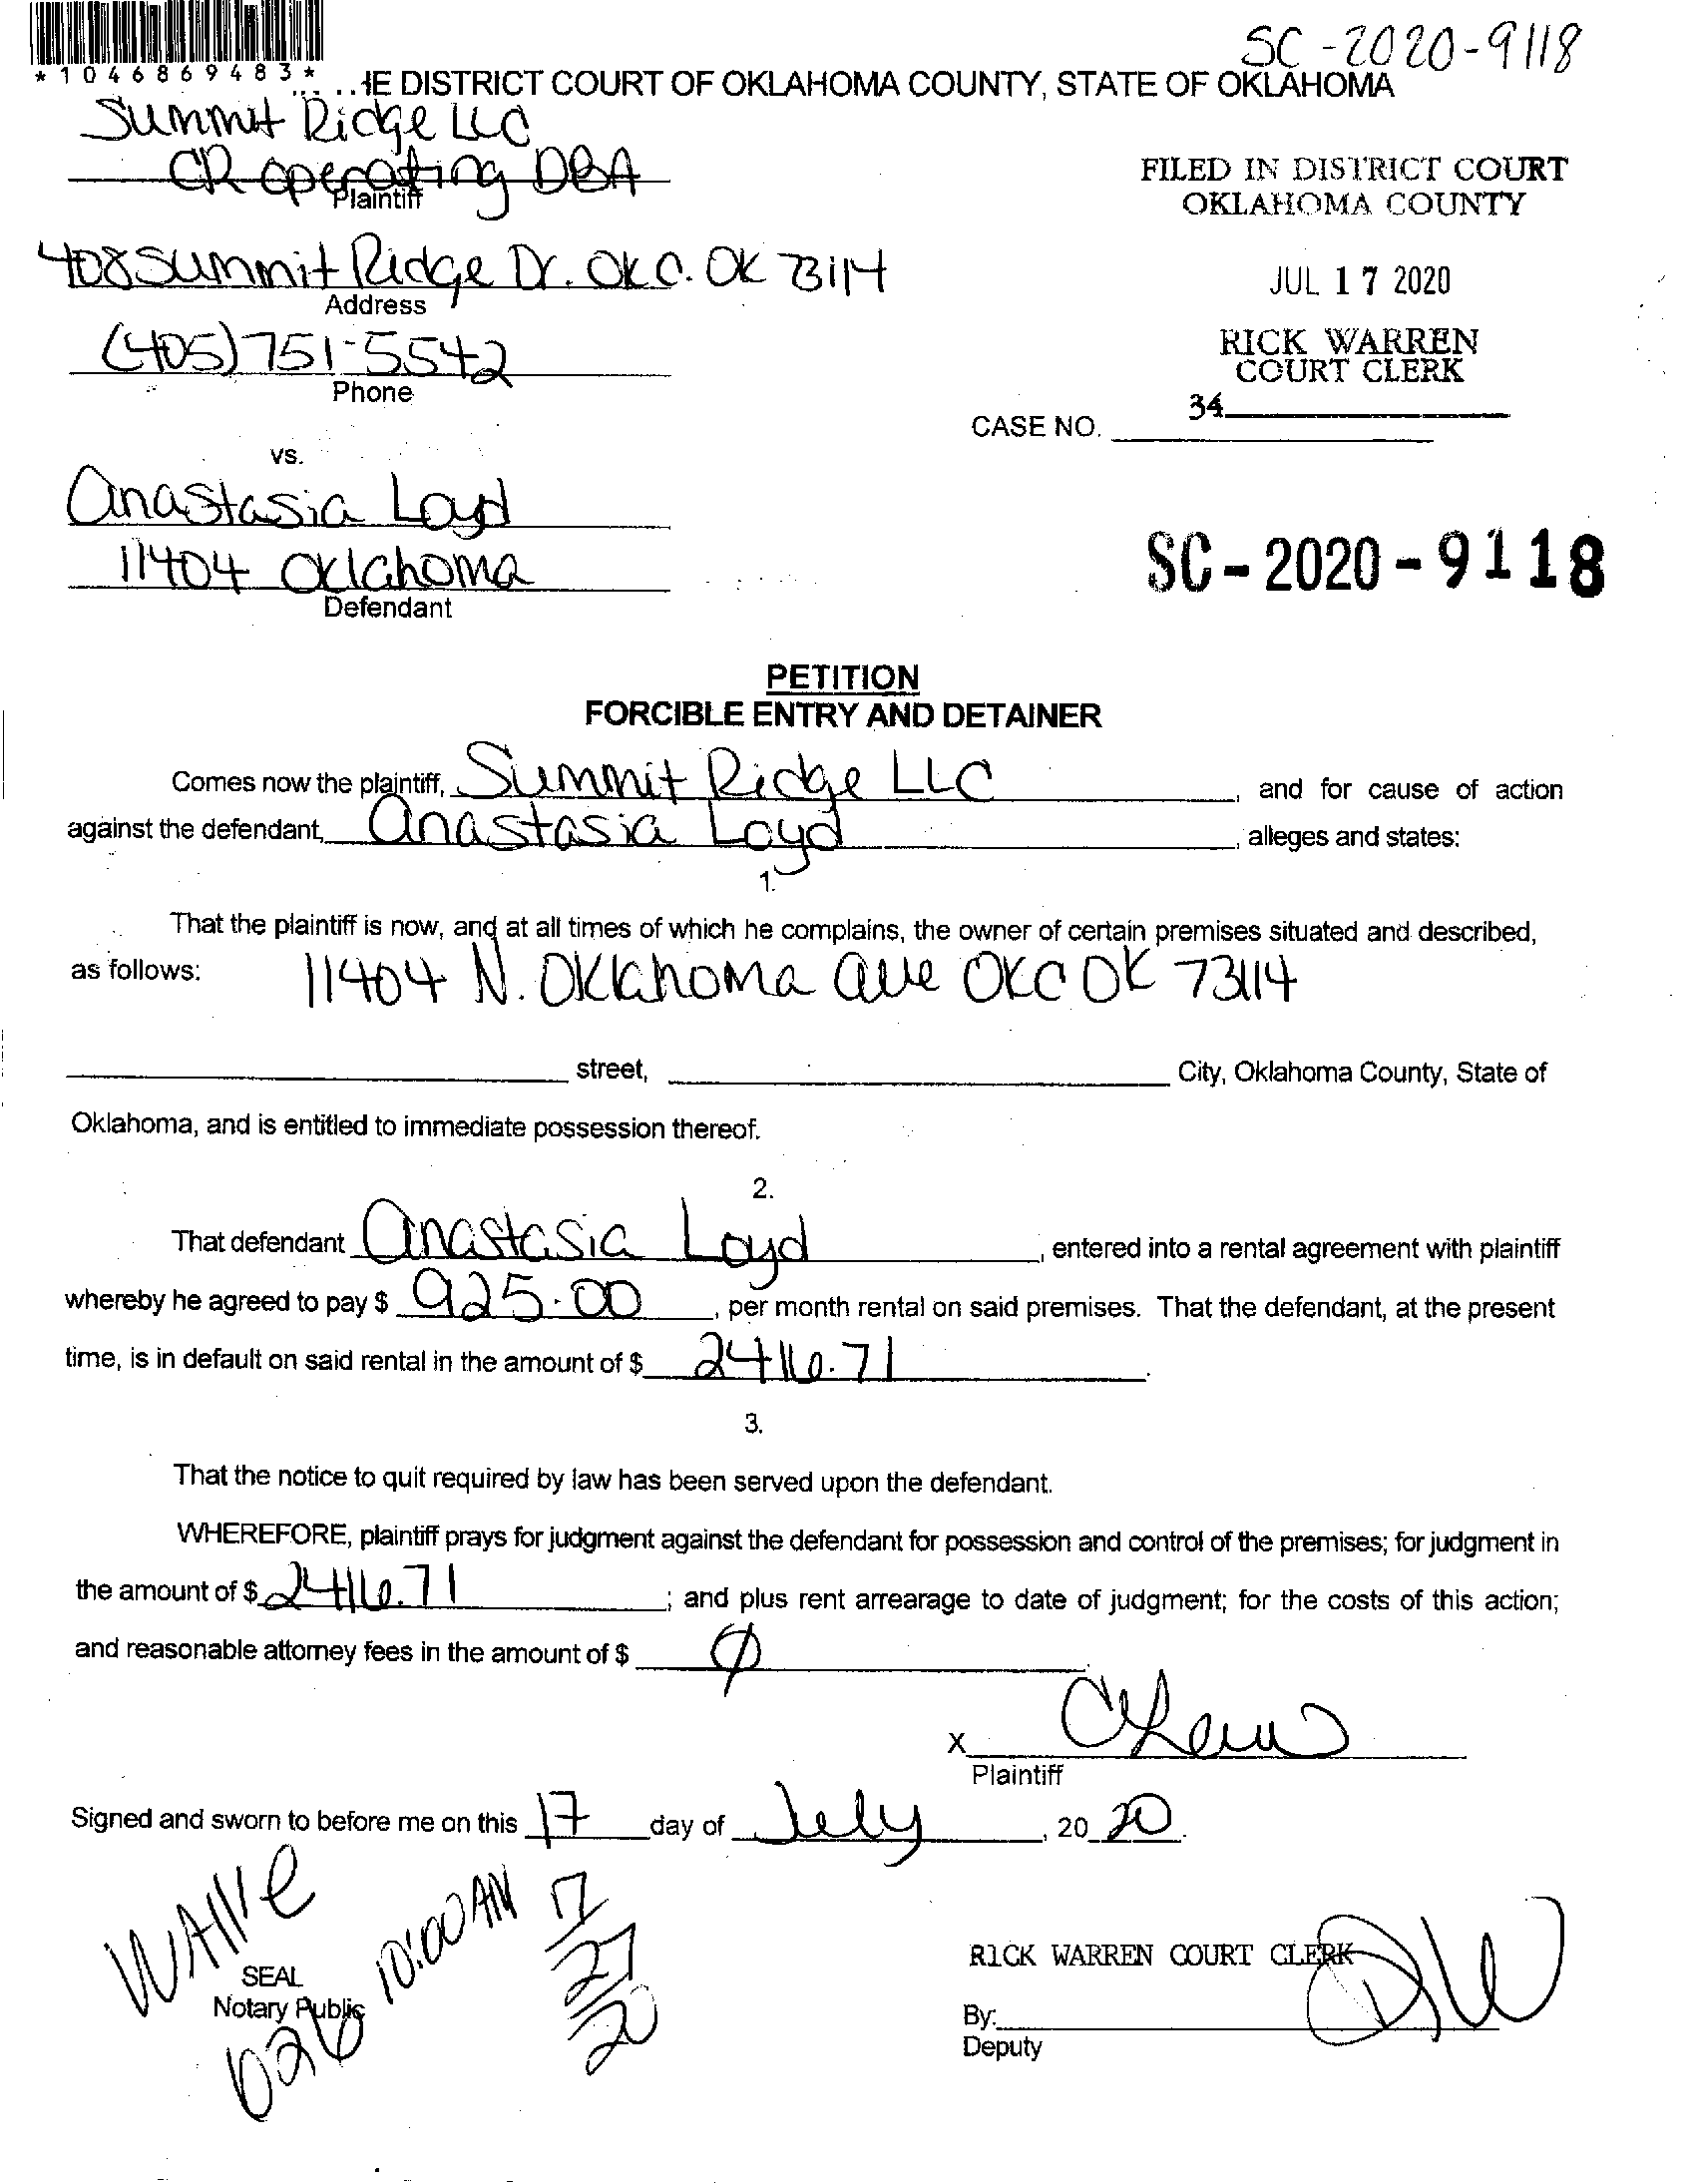 *1046869483*
SC-2020-9118
HE DISTRICT COURT OF OKLAHOMA COUNTY, STATE OF OKLAHOMA
Summit Ridge LLC
CR operating DBA
Plaintiff
FILED IN DISTRICT COURT
OKLAHOMA COUNTY
408 Summit Ridge Dr. OKC. OK 73114
Address
JUL 17 2020
(405) 751-5542
Phone
RICK WARREN
COURT CLERK
34
CASE NO.
vs.
Anastasia Loyd
11404 Oklahoma
Defendant
SC-2020-9118
PETITION
FORCIBLE ENTRY AND DETAINER
Comes now the plaintiff, Summit Ridge LLC, and for cause of action
against the defendant, Anastasia Loyd, alleges and states:
1.
That the plaintiff is now, and at all times of which he complains, the owner of certain premises situated and described,
as follows: 11404 N. Oklahoma Ave OKC OK 73114
street, City, Oklahoma County, State of
Oklahoma, and is entitled to immediate possession thereof.
2.
That defendant Anastasia Loyd, entered into a rental agreement with plaintiff
whereby he agreed to pay $ 925.00, per month rental on said premises. That the defendant, at the present
time, is in default on said rental in the amount of $ 2416.71.
3.
That the notice to quit required by law has been served upon the defendant.
WHEREFORE, plaintiff prays for judgment against the defendant for possession and control of the premises; for judgment in
the amount of $ 2416.71; and plus rent arrearage to date of judgment; for the costs of this action;
and reasonable attorney fees in the amount of $ 0
X
Plaintiff
Signed and sworn to before me on this 17 day of July, 20 20.
10:00 AM
SEAL
Notary Public
RICK WARREN COURT CLERK
By:
Deputy